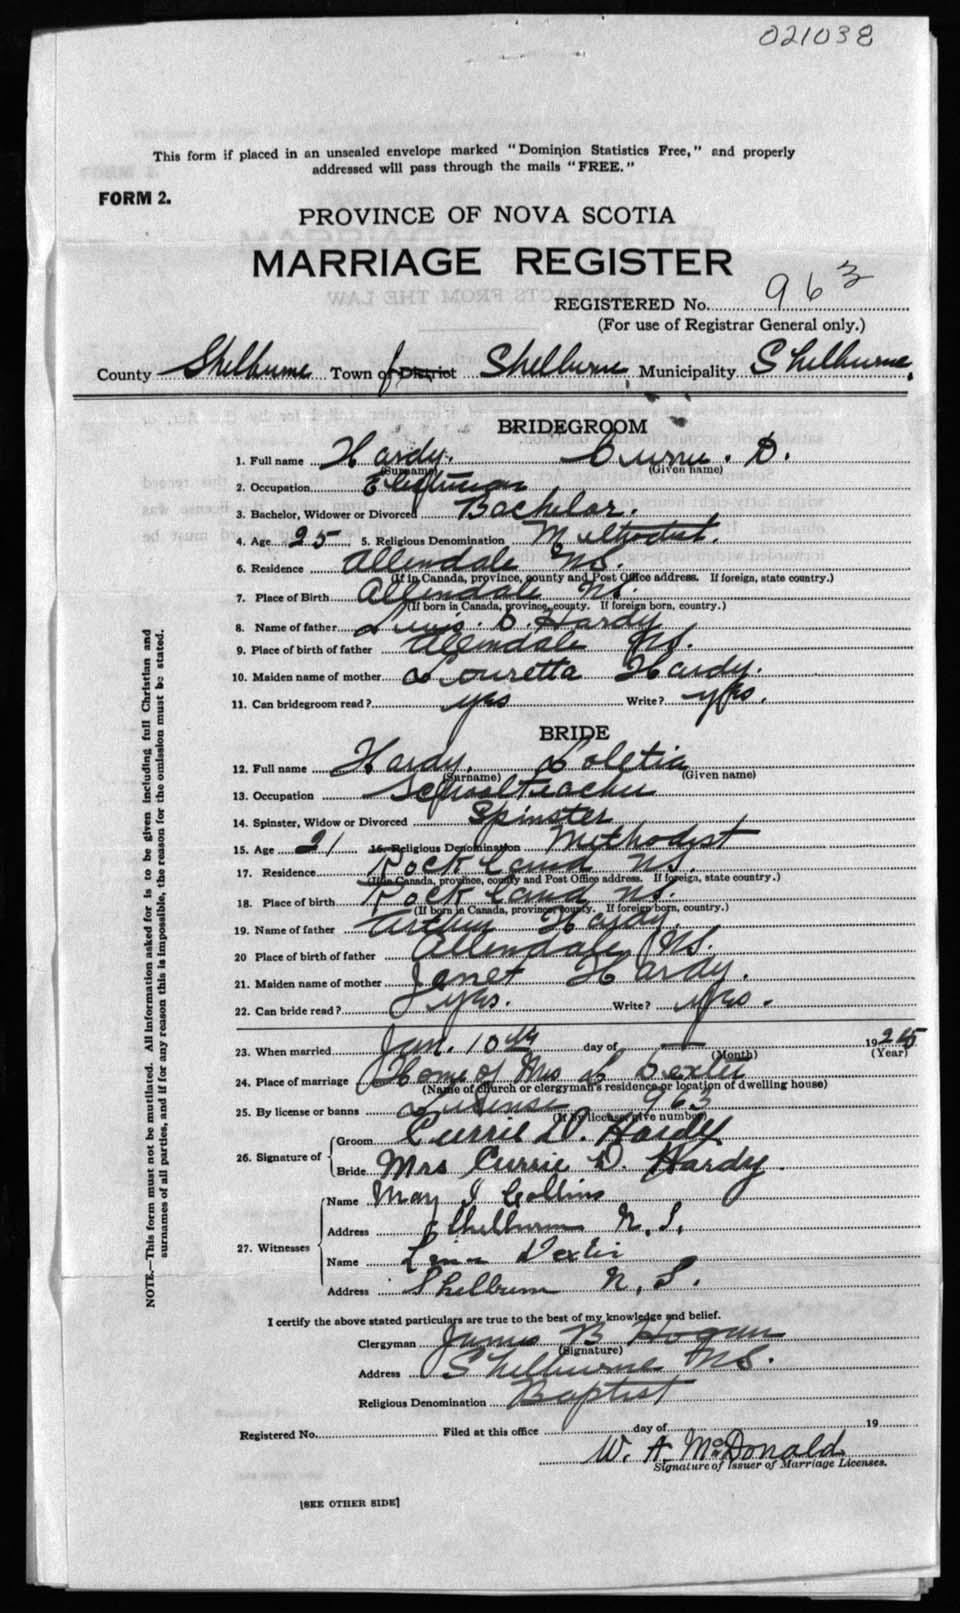 021038
This form if placed in an unsealed envelope marked "Dominion Statistics Free," and properly
addressed will pass through the mails "FREE."
FORM 2.
PROVINCE OF NOVA SCOTIA
MARRIAGE REGISTER
REGISTERED No. 963
(For use of Registrar General only.)
County Shelburne Town of District Shelburne Municipality Shelburne.
BRIDEGROOM
1. Full name Hardy. Currie. D.
(Surname) (Given name)
2. Occupation
3. Bachelor, Widower or Divorced Bachelor.
4. Age 25 5. Religious Denomination Methodist.
6. Residence Allendale NS.
(If in Canada, province, county and Post Office address. If foreign, state country.)
7. Place of Birth Allendale NS.
(If born in Canada, province, county. If foreign born, country.)
8. Name of father Lewis. C. Hardy
9. Place of birth of father Allendale NS.
10. Maiden name of mother Louretta Hardy.
11. Can bridegroom read? yes Write? yes.
BRIDE
12. Full name Hardy. Loletia
(Surname) (Given name)
13. Occupation School teacher
14. Spinster, Widow or Divorced Spinster
15. Age 21 16. Religious Denomination Methodist
17. Residence Rockland NS.
(If in Canada, province, county and Post Office address. If foreign, state country.)
18. Place of birth Rockland NS.
(If born in Canada, province, county. If foreign born, country.)
19. Name of father Arthur Hardy
20 Place of birth of father Allendale NS.
21. Maiden name of mother Janet Hardy.
22. Can bride read? yes. Write? yes.
23. When married Jan. 10th day of — 1925
(Month) (Year)
24. Place of marriage Home of Mrs L Dexter
(Name of church or clergyman's residence or location of dwelling house)
25. By license or banns Lisense 963
(If by license, give number)
26. Signature of Groom Currie D. Hardy
Bride Mrs Currie D. Hardy.
27. Witnesses Name May I Collins
Address Shelburne N.S.
Name Lena Dexter
Address Shelburne N.S.
I certify the above stated particulars are true to the best of my knowledge and belief.
Clergyman James B Hogan
(Signature)
Address Shelburne NS.
Religious Denomination Baptist
Registered No. Filed at this office day of 19
W. A. McDonald
Signature of Issuer of Marriage Licenses.
[SEE OTHER SIDE]
NOTE.—This form must not be mutilated. All information asked for is to be given including full Christian and
surnames of all parties, and if for any reason this is impossible, the reason for the omission must be stated.